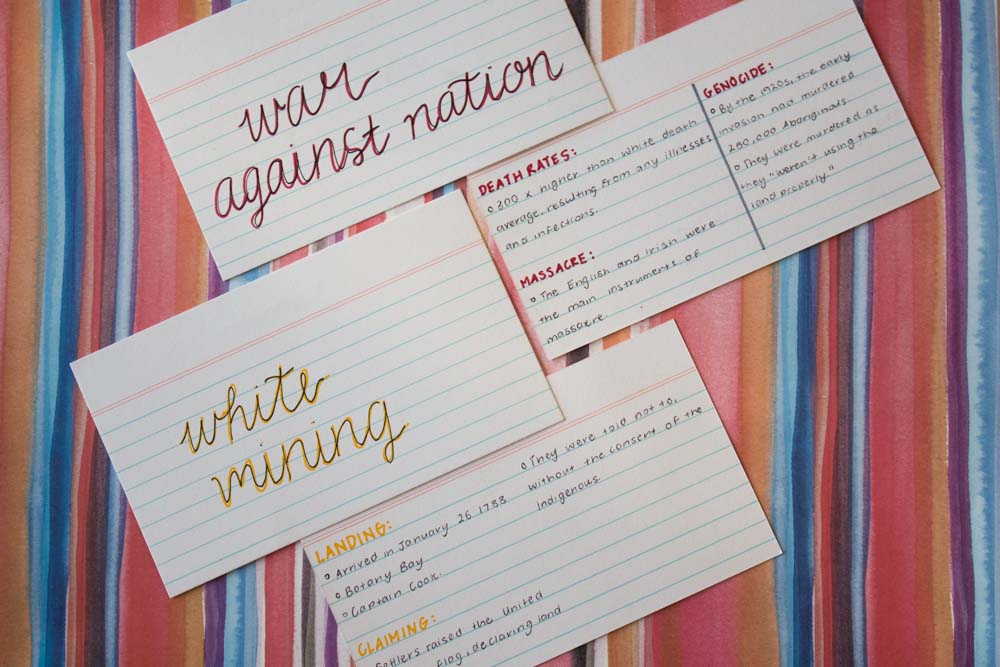 war
against nation
DEATH RATES:
o 300 x higher than white death
average, resulting from any illnesses
and infections.
MASSACRE:
o The English and Irish were
the main instruments of
massacre.
GENOCIDE:
o By the 1920s, the early
invasion had murdered
290,000 Aboriginals.
o They were murdered as
they "weren't using the
land properly"
white
mining
LANDING:
o Arrived in January 26 1788
o Botany Bay
o Captain Cook.
CLAIMING:
Settlers raised the United
flag, declaring land
o They were told not to,
without the consent of the
Indigenous.